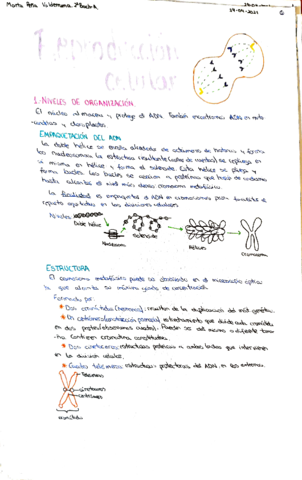 Marta Peña Valderrama, 2º Bach A
19-04-2021
Reproducción
celular
1. NIVELES DE ORGANIZACIÓN
El núcleo almacena y protege el ADN. También encontramos ADN en mito-
condrias y cloroplastos.
EMPAQUETACIÓN DEL ADN
La doble hélice se enrolla alrededor de octámeros de histonas y forma
los nucleosomas. La estructura resultante (collar de cuentas) se repliega en
sí misma en hélice y forma el solenoide. Esta hélice se pliega y
forma bucles. Los bucles se asocian a proteínas que hacen de andamio
hasta alcanzar el nivel más denso: cromosoma metafásico.
La finalidad es empaquetar el ADN en cromosomas para facilitar el
reparto equitativo en las divisiones celulares.
Niveles:
Doble hélice
Nucleosoma
Solenoide
Bucles
Cromosoma
ESTRUCTURA
El cromosoma metafásico puede ser observado en el microscopio óptico
ya que alcanza su máximo grado de condensación.
Formado por:
Dos cromátidas (hermanas): resultan de la duplicación del mat. genético.
Un centrómero (constricción primaria): estrechamiento que divide cada cromátida
en dos partes (brazos). Pueden ser del mismo o diferente tama-
ño. Contienen cromatina constitutiva.
Dos cinetocoros: estructuras proteicas a ambos lados que intervienen
en la división celular.
Cuatro telómeros: estructuras protectoras del ADN en los extremos.
telómeros
cinetocoros
centrómero
cromátida